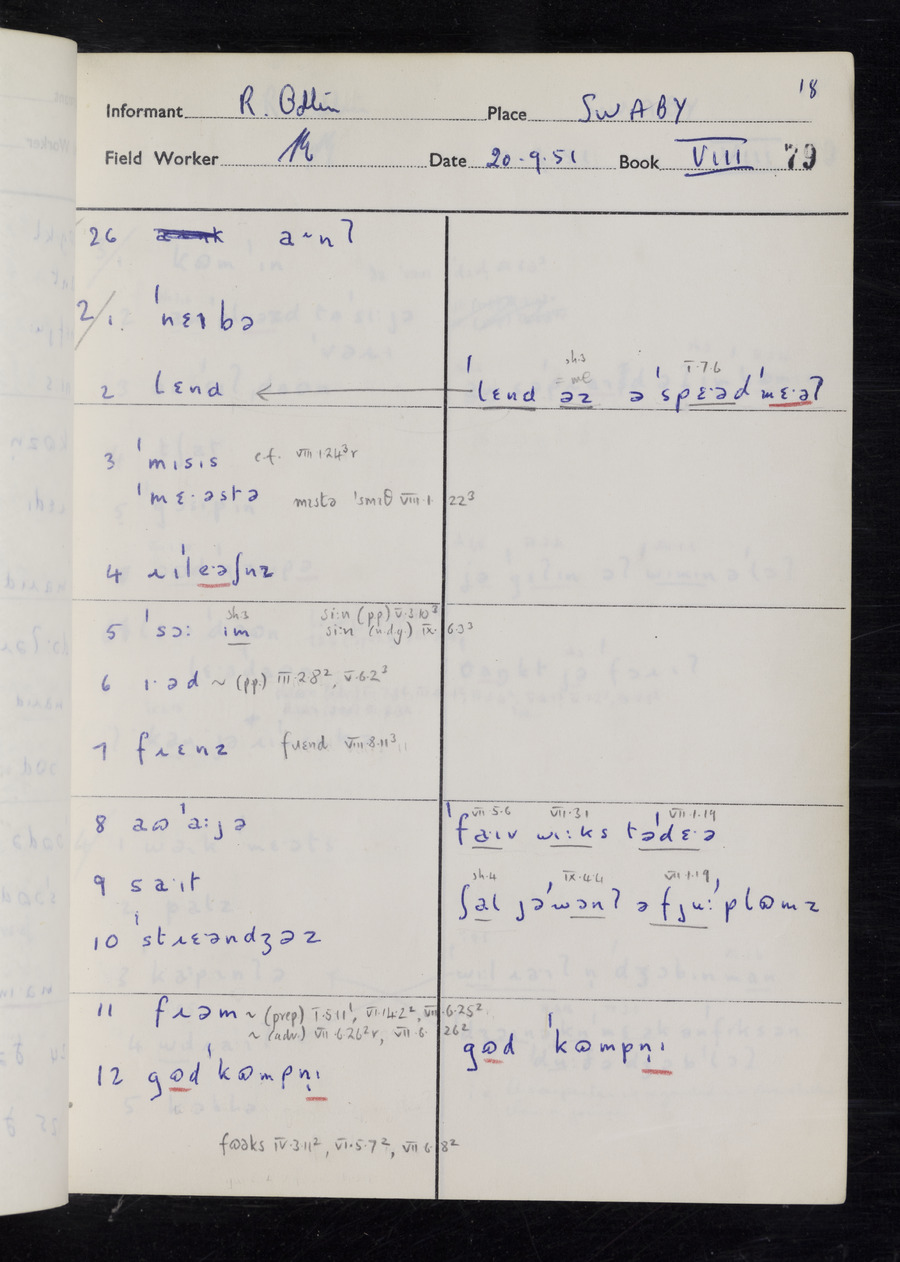 18
Informant R. Odlin Place SWABY
Field Worker Date 20.9.51 Book VIII 79
26 aˑnʔ
2/1. ˈnɛɪbə
2 lɛnd ← ˈlɛnd əz ə ˈspɛˑəd ˈmɛˑəʔ
sh.3 I.7.6
3 ˈmɪsɪs c.f. VIII.1.24³r
ˈmɛˑəstə mɪstə ˈsmɪθ VIII.1.22³
4 ɹɪˈleəʃnz
5 ˈsɔː ɪm siːn (pp) V.3.10³
sh.3 siːn (n.d.g.) IX.6.3³
6 ɪˑəd ~ (pp.) III.2.8², V.6.2³
7 fɹɛnz fɹɛnd VIII.8.11³
VII.5.6 VII.3.1 VII.1.19
8 aʊˈaːjə ˈfaˑɪv wɪːks təˈdɛˑə
sh.4 IX.4.4 VII.1.19
9 saˑɪt ʃal jəˈwɒnʔ ə fjuːˈplʊmz
10 ˈstɹɛəndʒəz
11 fɹəm ~ (prep) I.5.11¹, VI.14.2², VII.6.25²
~ (adv.) VII.6.26²r, VII.6.26²
gʊd ˈkʊmpn̩ɪ
12 gʊdˈkʊmpn̩ɪ
fʊəks IV.3.11², VI.5.7², VII.6.8²